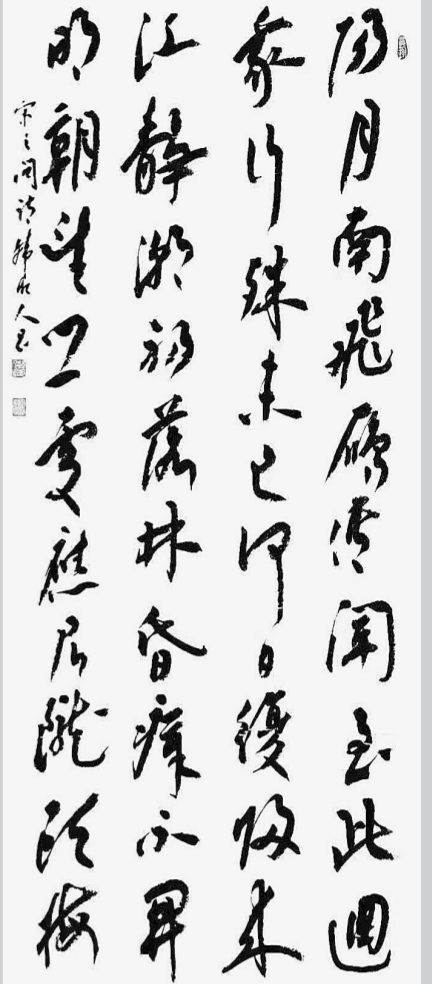 陽月南飛雁傳聞至此迴
我行殊未已何日復歸來
江靜潮初落林昏瘴不開
明朝望鄉處應見隴頭梅
宋之問詩